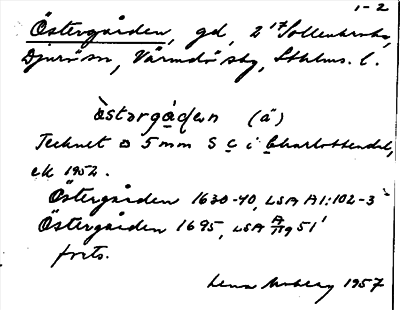 1-2
Östergården, gd, 2 17 Sollenkroka,
Djurö sn, Värmdö sbg, Sthlms. l.
òstərgå̀ḍən (ä)
Tecknet o 5 mm S C i Charlottendal,
ek 1952.
Östergården 1630-40, LSA A1:102-3
Östergården 1695, LSA A 51
forts.
Lena Moberg 1957